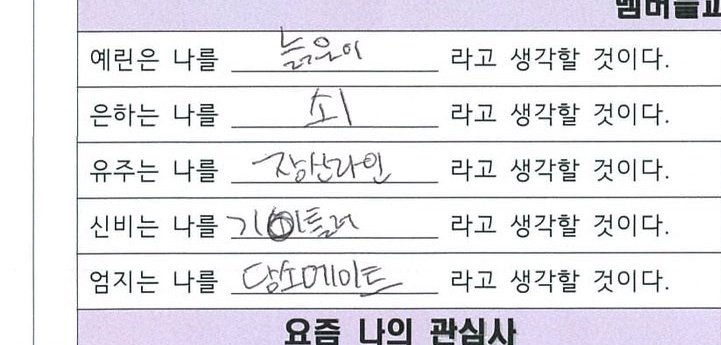 멤버들과
예린은 나를 늙은이 라고 생각할 것이다.
은하는 나를 쇠 라고 생각할 것이다.
유주는 나를 장난라인 라고 생각할 것이다.
신비는 나를 라고 생각할 것이다.
엄지는 나를 담소메이트 라고 생각할 것이다.
요즘 나의 관심사